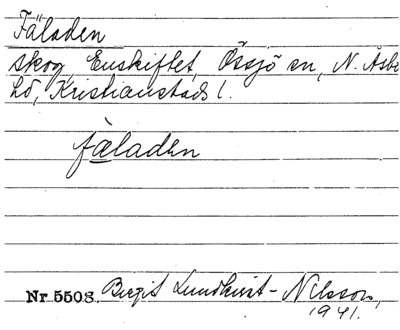 Fäladen
skog, Enskiftet, Össjö sn, N. Åsbo
hd, Kristianstads l.
fäladen
Nr 5508. Birgit Lundkvist-Nilsson,
1941.